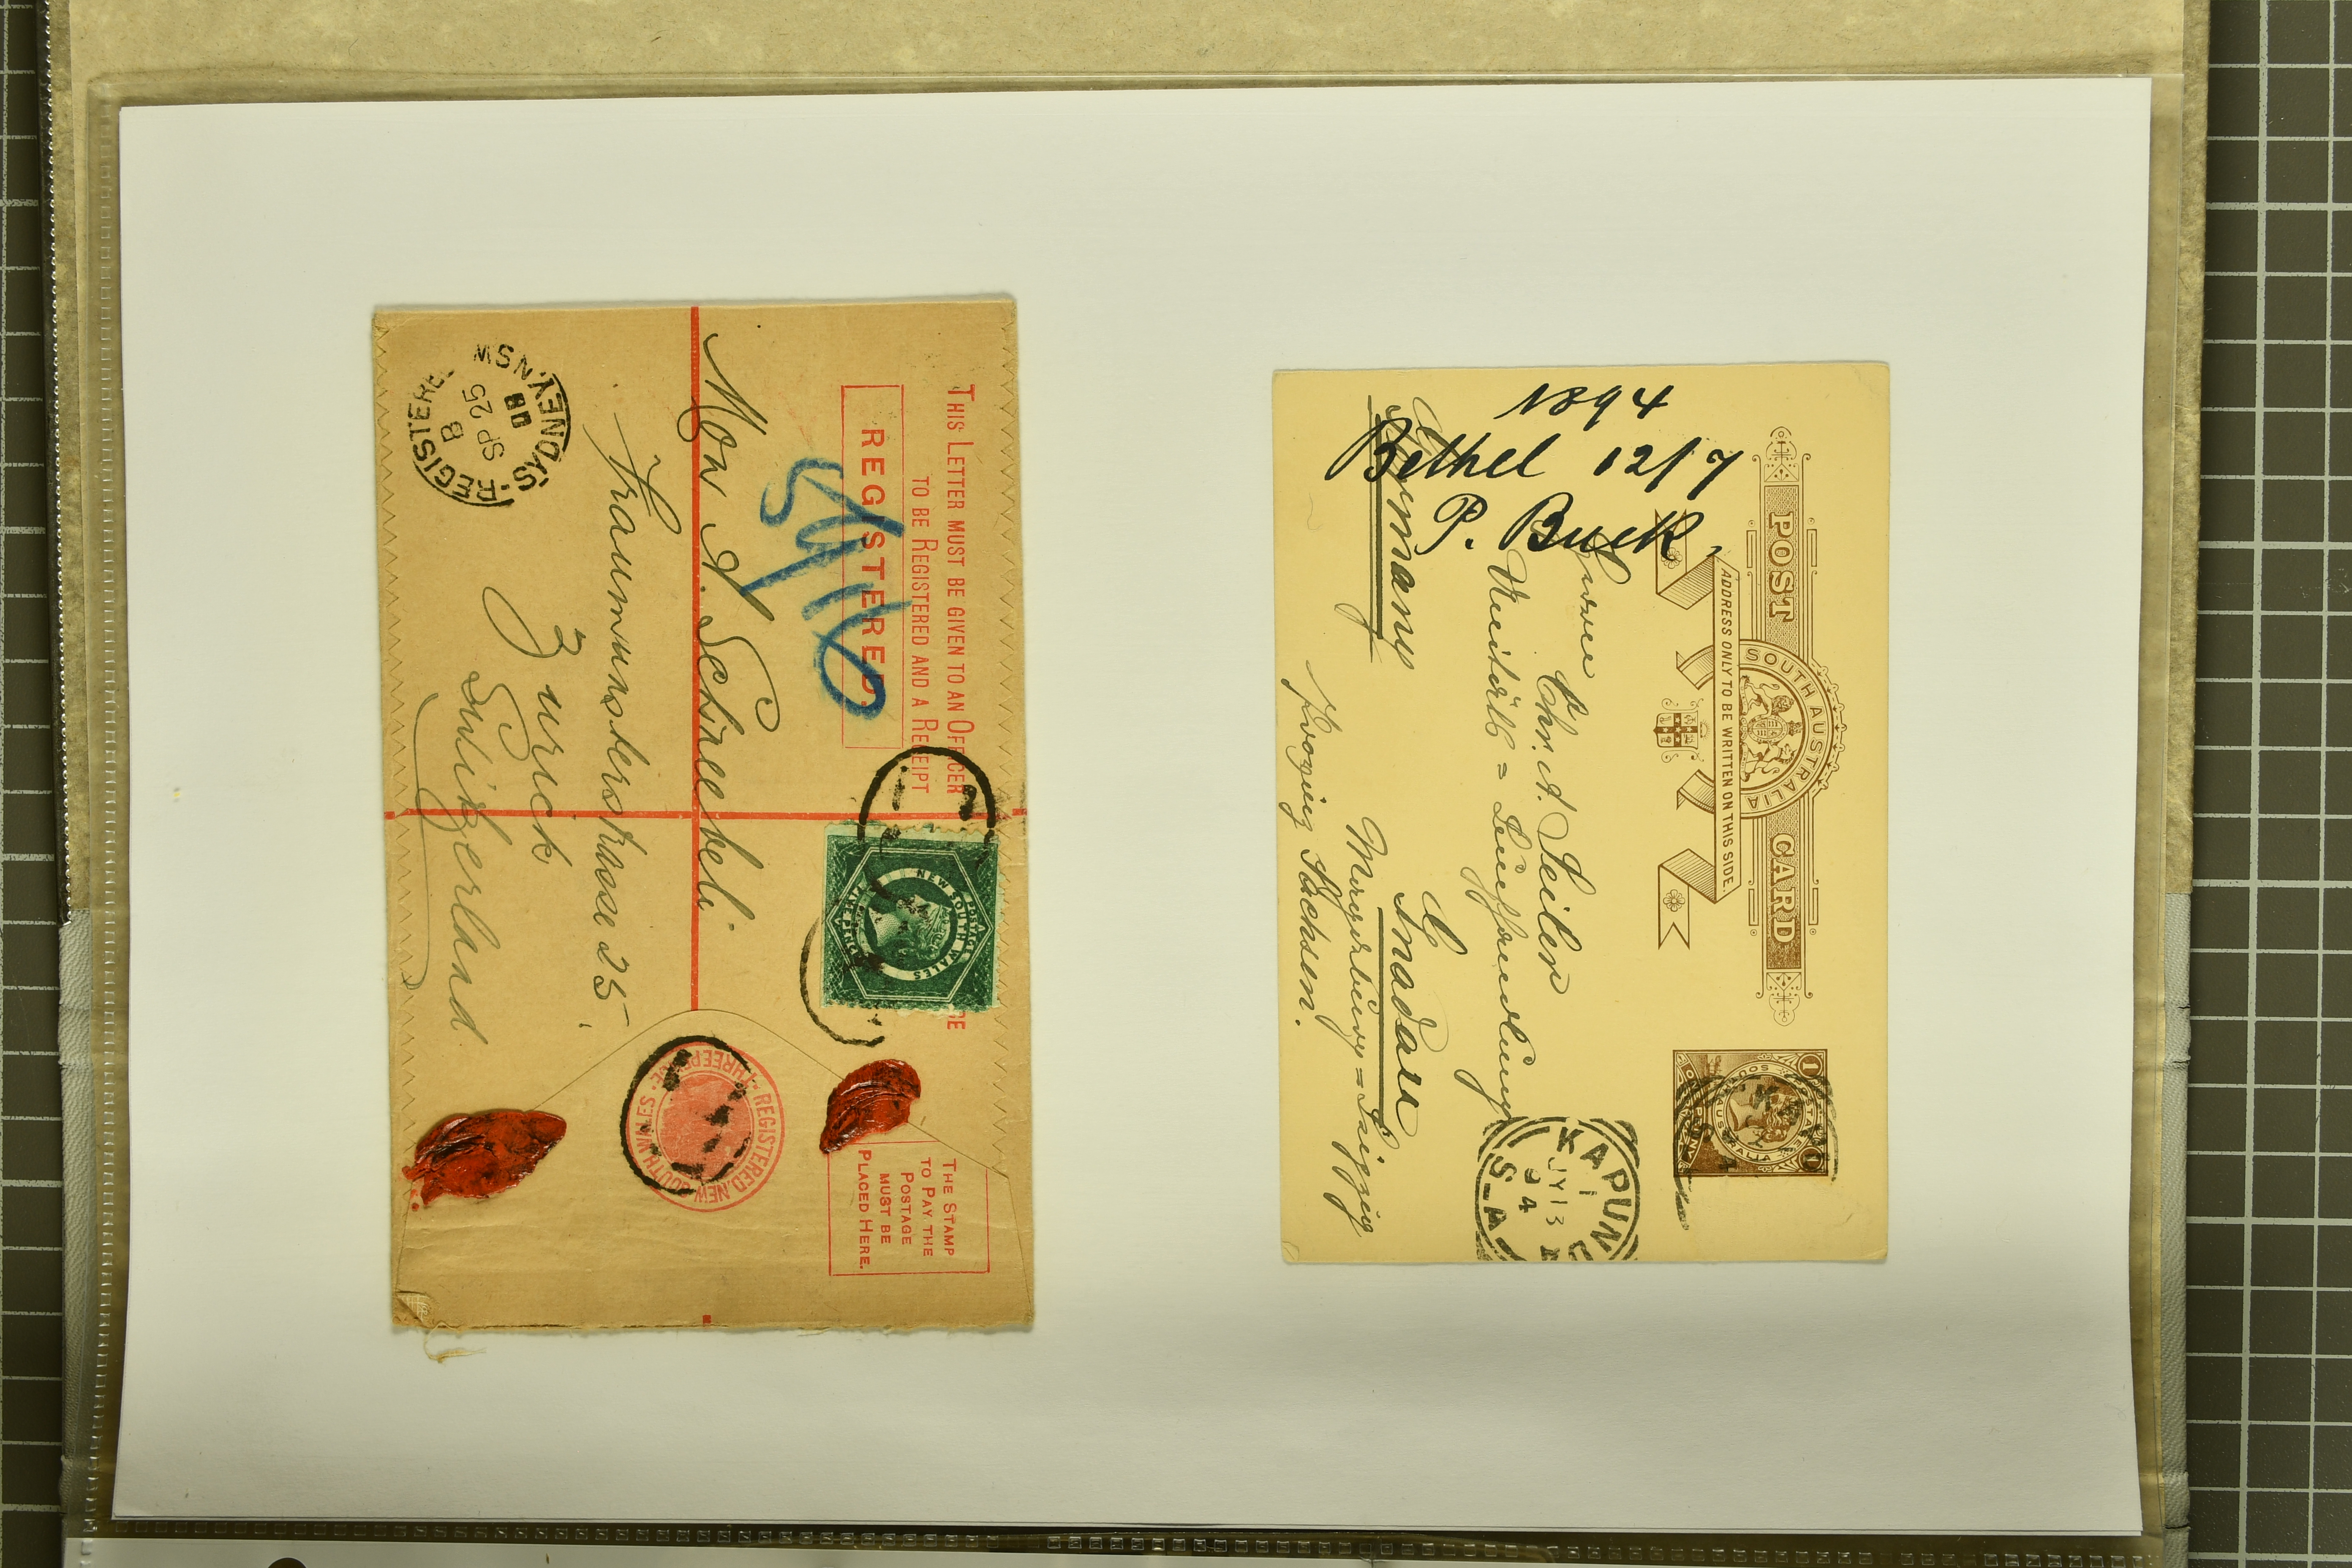 THIS LETTER MUST BE GIVEN TO AN OFFICER
TO BE REGISTERED AND A RECEIPT
REGISTERED.
THE STAMP
TO PAY THE
POSTAGE
MUST BE
PLACED HERE.
POSTAGE
NEW SOUTH WALES
FIVE PENCE
REGISTERED. NEW SOUTH WALES
THREEPENCE
Mon A. Schneebeli
Fraumunsterstrasse 25
Zurich
Switzerland
REGISTERED
SYDNEY. N.S.W
B
SP 25
POST CARD
SOUTH AUSTRALIA
ADDRESS ONLY TO BE WRITTEN ON THIS SIDE.
1894
Bethel 12/7
P. Buck,
Chr. A. Seiler
Germany
KAPUN
1
JY 13
94
S-A